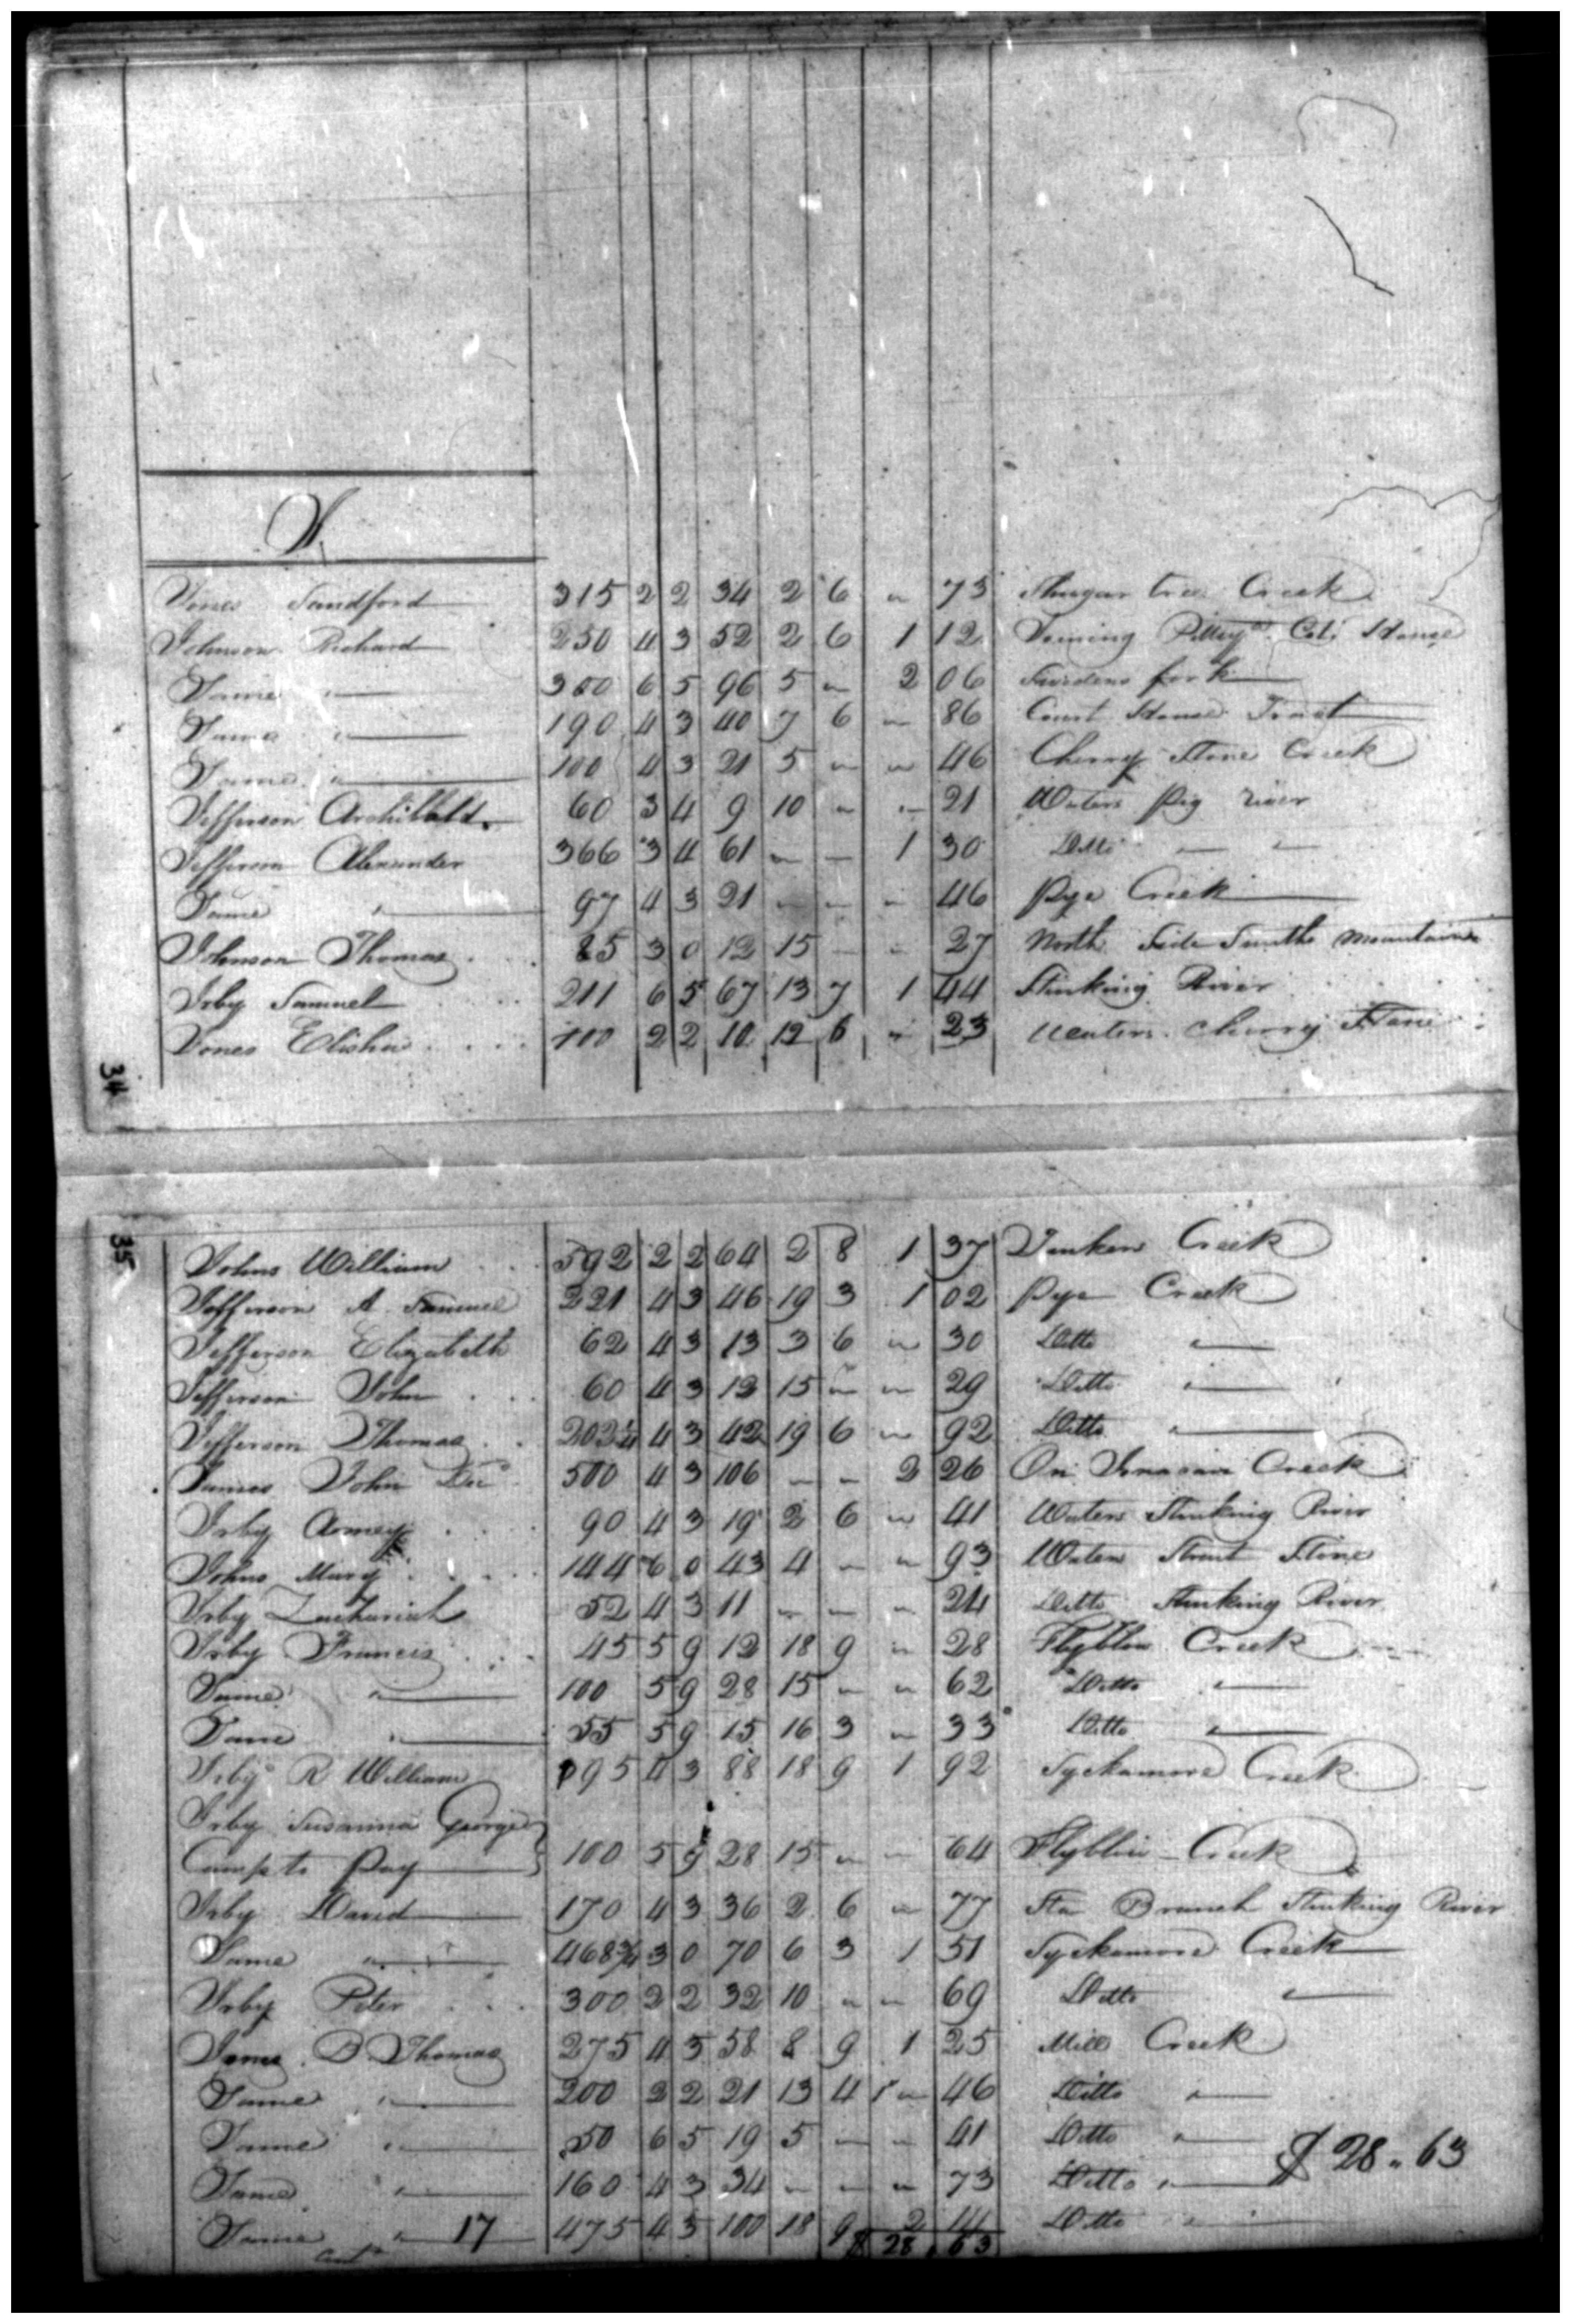 J.
Jones Sandford 315 2 2 34 2 6 " 73 Shugar tree Creek
Johnson Richard 250 4 3 52 2 6 1 12 Joining Pittsy. Cot. House
Same " 300 6 5 96 5 " 2 06 fork
Same " 190 4 3 40 7 6 " 86 Court House Tract
Same " 100 4 3 21 5 " " 46 Cherry Stone Creek
Jefferson Archibald 60 3 4 9 10 " " 21 Waters Pig river
Jefferson Alexander 366 3 4 61 " — 1 30 Ditto — "
Same " 97 4 3 21 — — " 46 Pye Creek
Johnson Thomas 85 3 0 12 15 — " 27 North Side Smiths Mountain
Irby Samuel 211 6 5 67 13 7 1 44 Stinking River
Jones Elisha 100 2 2 10 12 6 " 23 Waters Cherry Stone
34
35
Johns William 592 2 2 64 2 8 1 37 Creek
Jefferson A Samuel 221 4 3 46 19 3 1 02 Pye Creek
Jefferson Elizabeth 62 4 3 13 3 6 " 30 Ditto "
Jefferson John 60 4 3 12 15 " " 29 Ditto "
Jefferson Thomas 203¼ 4 3 42 19 6 " 92 Ditto "
James John 500 4 3 106 — — 2 26 On Creek
Irby 90 4 3 19 2 6 " 41 Waters Stinking River
Johns Mary 144 6 0 43 4 — " 93 Waters Stone
Irby Zachariah 52 4 3 11 — — " 24 Ditto Stinking River
Irby Francis 45 5 9 12 18 9 " 28 Flyblow Creek
Same " 100 5 9 28 15 " " 62 Ditto "
Same " 55 5 9 15 16 3 " 33 Ditto "
Irby R William 395 4 3 88 18 9 1 92 Syckamore Creek
Irby Susanna George
to Pay 100 5 9 28 15 " — 64 Flyblow Creek
Irby David 170 4 3 36 2 6 " 77 Branch Stinking River
Same " 468¾ 3 0 70 6 3 1 51 Syckamore Creek
Irby Peter 300 2 2 32 10 " " 69 Ditto "
Jones B Thomas 275 4 3 58 8 9 1 25 Mill Creek
Same " 200 2 2 21 13 4 " 46 Ditto "
Same " 50 6 5 19 5 — " 41 Ditto "
$ 28 " 63
Same " 160 4 3 34 " " " 73 Ditto "
Same " 17 475 4 3 100 18 9 2 14 Ditto "
$ 28 . 63